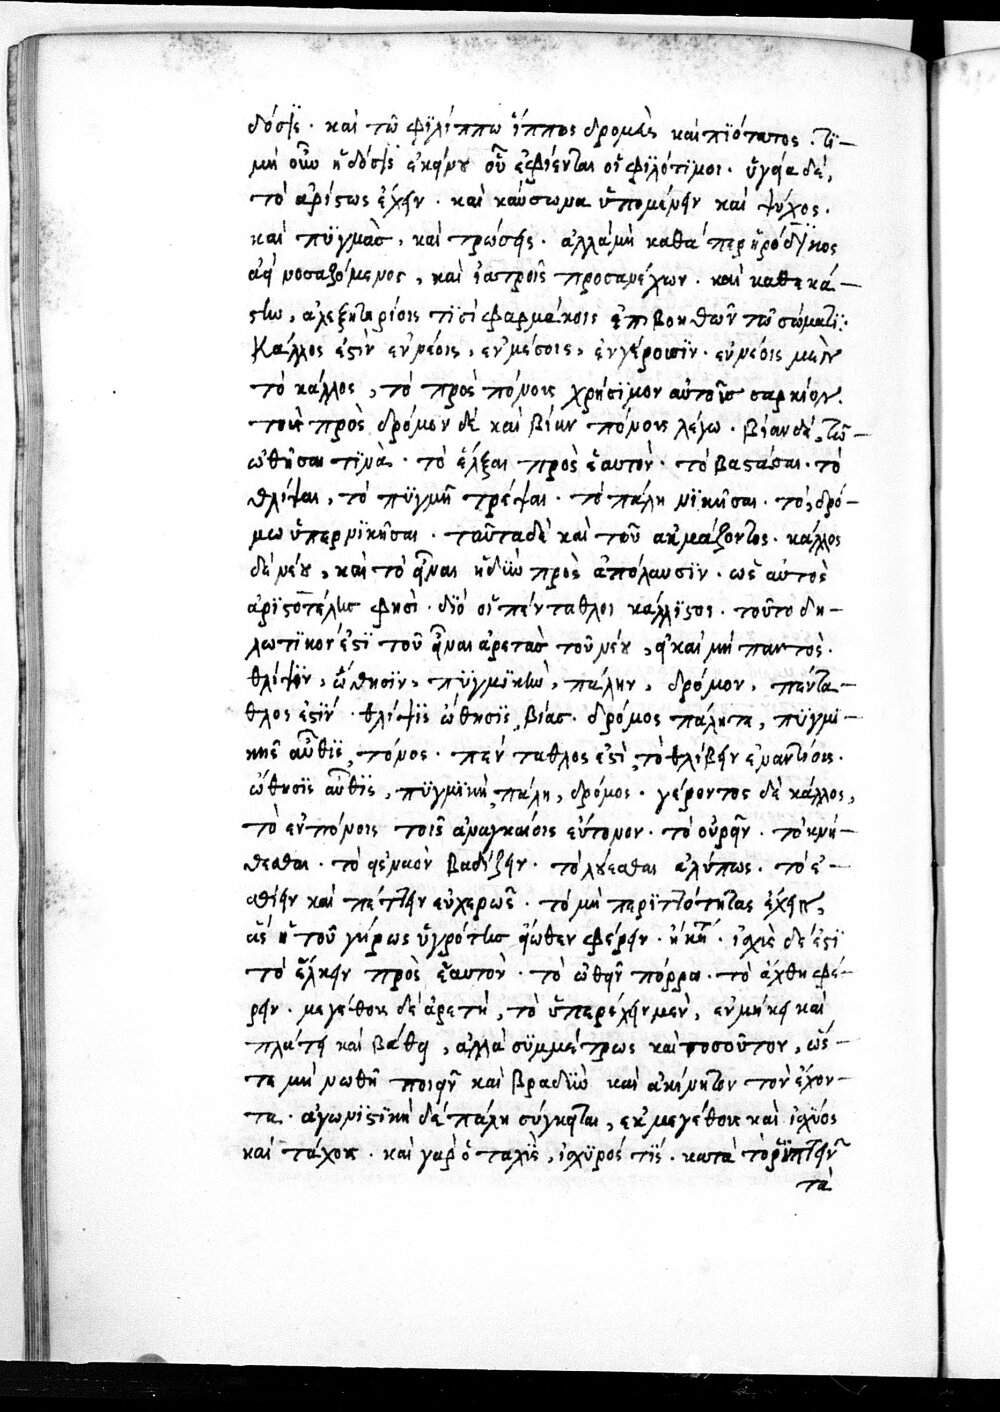 δόσϊς · καὶ τῶ φϊλίππω ἵππος δρομὰς καὶ πϊότατος · τϊ-
μὴ οὖν ἡ δόσϊς ἐκείνου οὗ ἐφίενται οἱ φϊλότϊμοι · ὑγεία δέ,
τὸ ἀρίστως ἔχειν · καὶ καύσωνα ὑπομένειν καὶ ψύχος ·
καὶ πϋγμὰς, καὶ τρώσεις · ἀλλὰ μὴ καθάπερ ἡρόδϊκος
ἀεὶ νοσαζόμενος, καὶ ἰατροῖς προσανέχων · καὶ καθεκά-
στην, ἀλεξητηρίοις τϊσὶ φαρμάκοις ἐπιβοηθῶν τῶ σώματϊ:
Κάλλος ἐστὶν ἐν νέοις, ἐν μέσοις, ἐν γέρουσϊν · ἐν νέοις μὲν
τὸ κάλλος, τὸ πρὸς πόνους χρήσϊμον αὐτοῖς σαρκίον.
τοὺς πρὸς δρόμον δὲ καὶ βίαν πόνους λέγω · βίαν δὲ, τῶ
ὠθῆσαι τϊνὰ · τὸ ἕλξαι πρὸς ἑαυτὸν · τὸ βαστάσαι · τὸ
θλίψαι, τὸ πϋγμῆ τρέψαι · τὸ πάλη νϊκῆσαι · τὸ, δρό-
μω ὑπερνϊκῆσαι · ταῦτα δὲ καὶ τοῦ ἀκμάζοντος · κάλλος
δὲ νέου, καὶ τὸ εἶναι ἡδὺν πρὸς ἀπόλαυσϊν · ὡς αὐτὸς
ἀρϊστοτέλης φησὶ · δϊὸ οἱ πένταθλοι κάλλϊστοι · τοῦτο δη-
λωτϊκόν ἐστϊ τοῦ εἶναι ἀρετὰς τοῦ νέου, εἰ καὶ μὴ παντὸς ·
θλίψϊν, ὤθησϊν, πϋγμϊκὴν, πάλην, δρόμον, πέντα-
θλος ἐστϊν · θλίψϊς ὤθησϊς, βίας · δρόμος πάλη τε, πϋγμϊ-
κῆς αὖθϊς, τόνος · πένταθλος ἐστὶ, τὸ θλίβειν ἐναντίοις ·
ὤθησϊς αὖθϊς, πϋγμϊκὴ, πάλη, δρόμος · γέροντος δὲ κάλλος,
τὸ ἐν πόνοις τοῖς ἀναγκαίοις εὔτονον · τὸ οὐρεῖν · τὸ κνή-
θεσθαι · τὸ βαδίζειν · τὸ λούεσθαι ἀλύπως · τὸ ἐ-
σθίειν καὶ πέττειν εὐχερῶς · τὸ μὴ περϊττότητας ἔχειν,
ἃς ἡ τοῦ γήρως ὑγρότης εἴωθεν φέρειν · ἰσχὺς δέ ἐστϊ
τὸ ἕλκειν πρὸς ἑαυτὸν · τὸ ὠθεῖν πόρρω · τὸ ἄχθη φέ-
ρειν · μεγέθους δὲ ἀρετὴ, τὸ ὑπερέχειν μὲν, ἐν μήκει καὶ
πλάτει καὶ βάθει, ἀλλὰ σϋμμέτρως καὶ τοσοῦτον, ὥς-
τε μὴ νωθῆ ποιεῖν καὶ βραδὺν καὶ ἀκίνητον τὸν ἔχον-
τα · ἀγωνϊστϊκὴ δὲ πάλη σύγκειται, ἐκ μεγέθους καὶ ἰσχύος
καὶ τάχους · καὶ γὰρ ὁ ταχὺς, ἰσχϋρός τϊς · κατὰ τὸ ῥίπτειν
τὰ